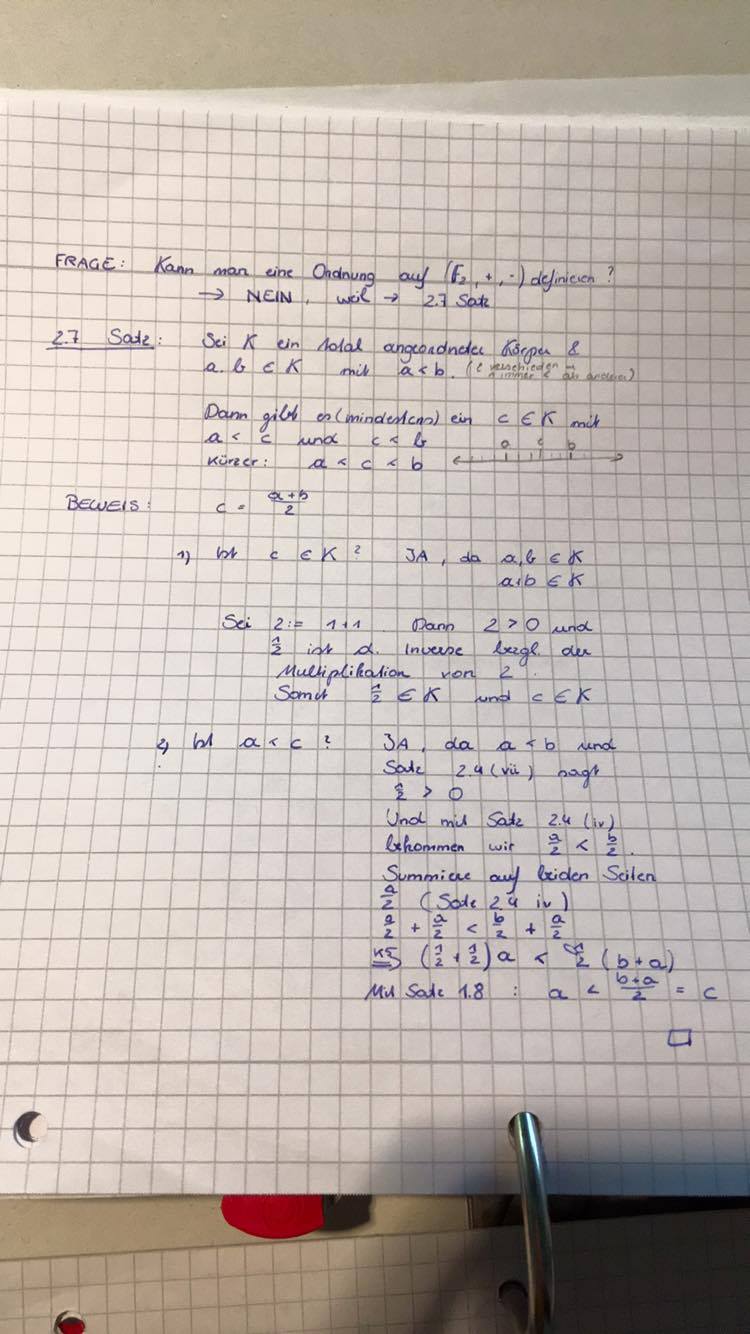 FRAGE: Kann man eine Ordnung auf (F₂, +, ·) definieren?
→ NEIN, weil → 2.7 Satz
2.7 Satz: Sei K ein total angeordneter Körper &
a, b ∈ K mit a < b. (2 verschieden → immer < als andere)
Dann gibt es (mindestens) ein c ∈ K mit
a < c und c < b
a c b
Kürzer: a < c < b
BEWEIS: c = (a+b)/2
1) Ist c ∈ K? JA, da a, b ∈ K
a+b ∈ K
Sei 2 := 1+1. Dann 2 > 0 und
1/2 ist d. Inverse bezgl. der
Multiplikation von 2.
Somit 1/2 ∈ K und c ∈ K
2) Ist a < c? JA, da a < b und
Satz 2.4 (vii) sagt
1/2 > 0
Und mit Satz 2.4 (iv)
bekommen wir a/2 < b/2.
Summiere auf beiden Seiten
a/2 (Satz 2.4 iv)
a/2 + a/2 < b/2 + a/2
K5) (1/2 + 1/2) a < 1/2 (b + a)
Mit Satz 1.8 : a < (b+a)/2 = c